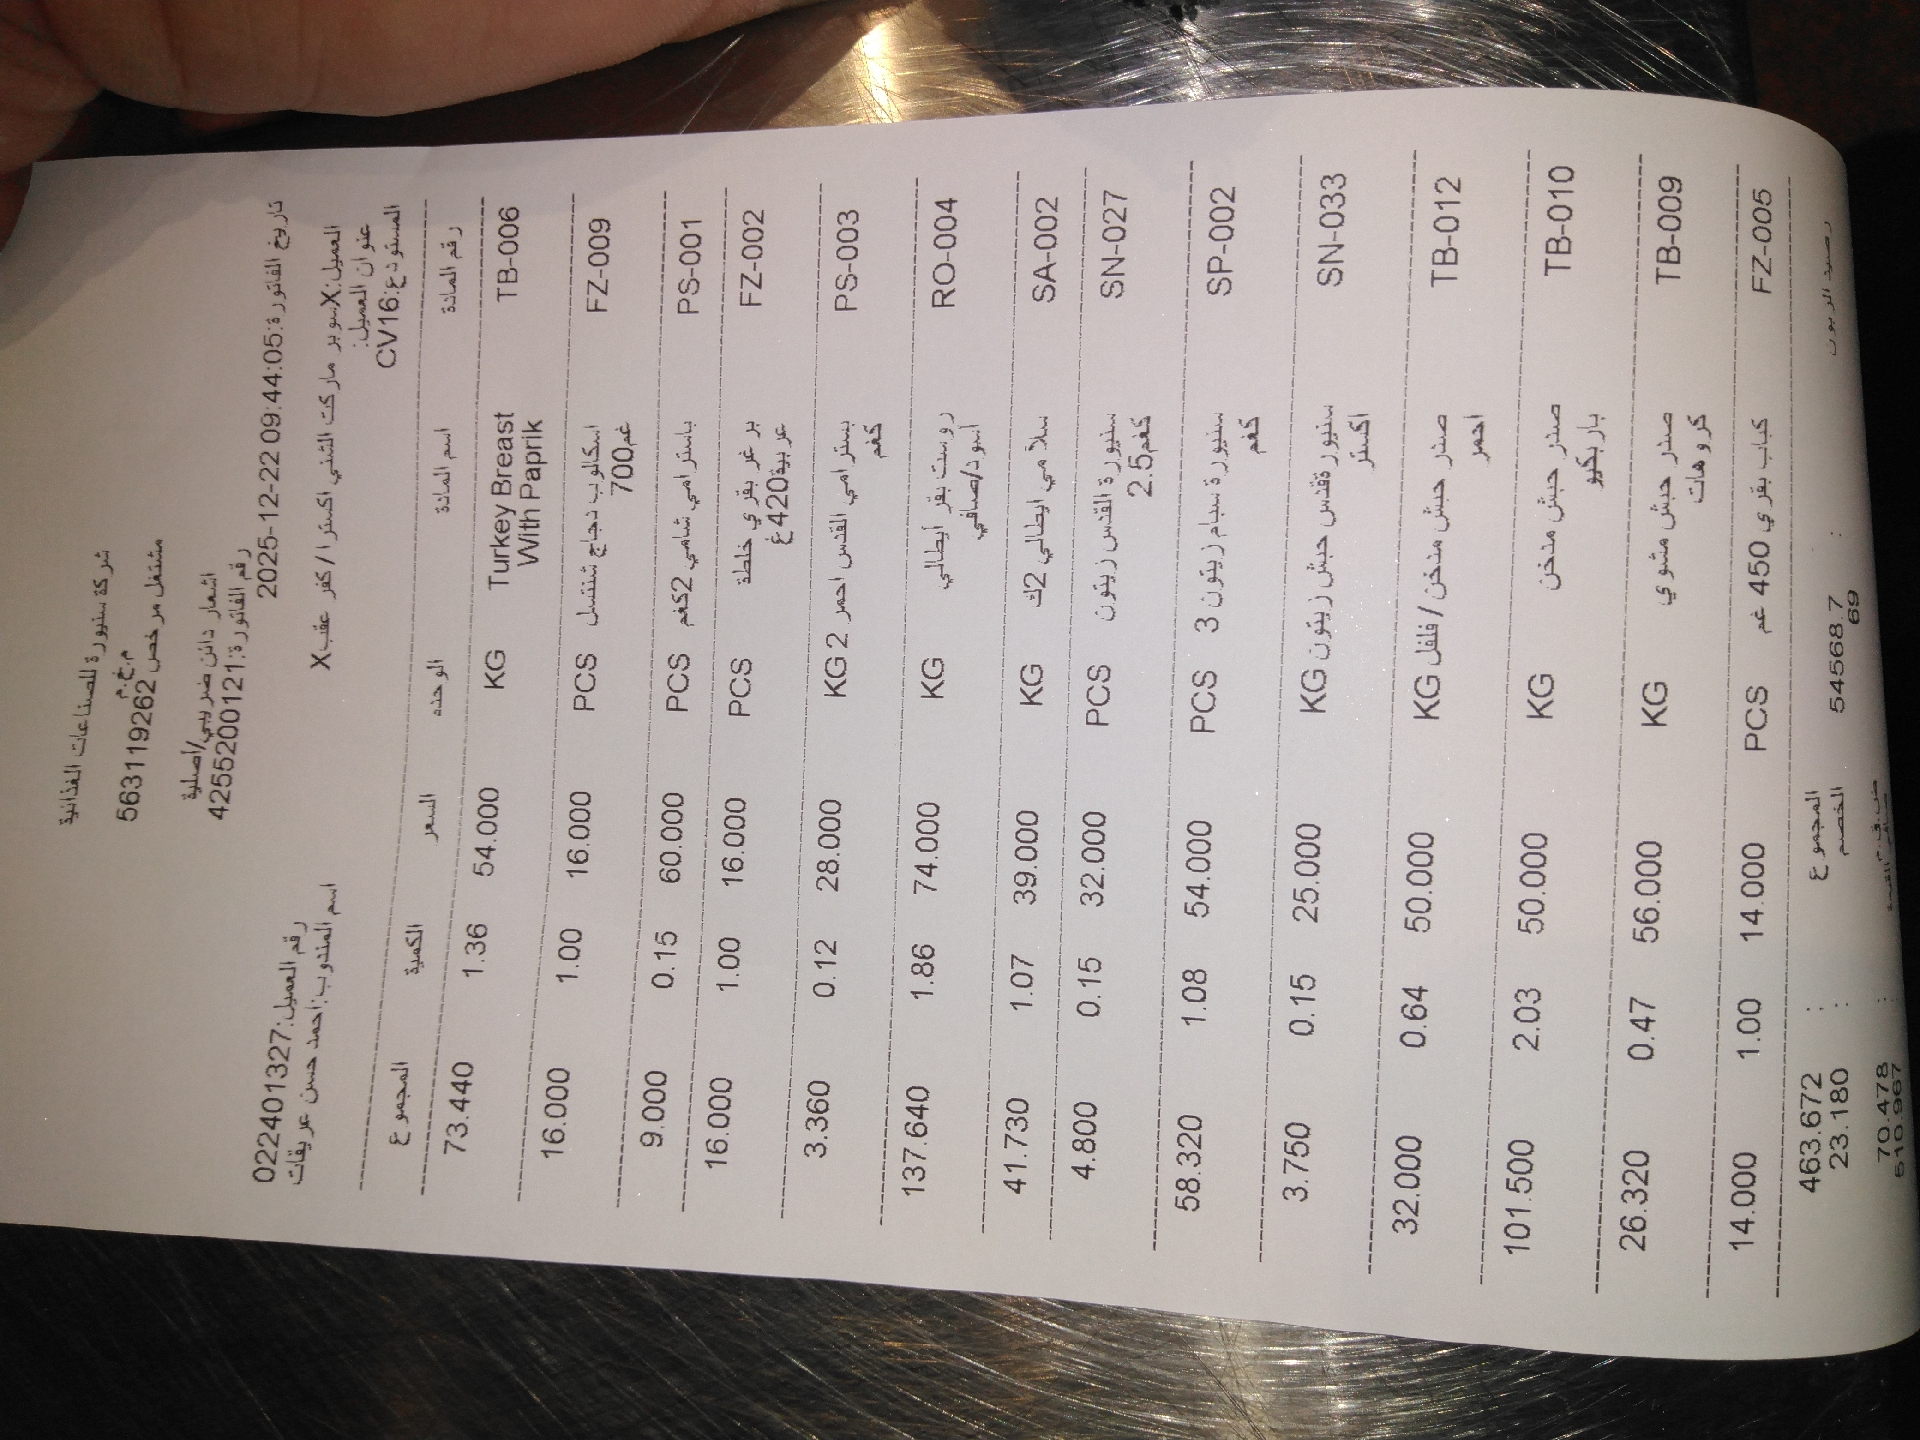 شركة سنيورة للصناعات الغذائية
م.خ.م
مشتغل مرخص 563119262
اشعار دائن ضريبي/أصلية
رقم الفاتورة:4255200121
تاريخ الفاتورة:2025-12-22 09:44:05
رقم العميل:022401327
العميل:Xسوبر ماركت الشني اكسترا/كفر عقبX
اسم المندوب:احمد حسن عريقات
عنوان العميل:
المستودع:CV16
رقم المادة اسم المادة الوحده السعر الكمية المجموع
TB-006 Turkey Breast KG 54.000 1.36 73.440
With Paprik
FZ-009 اسكالوب دجاج شنتسل PCS 16.000 1.00 16.000
700غم
PS-001 باسترامي شامي 2كغم PCS 60.000 0.15 9.000
FZ-002 برغر بقري خلطة PCS 16.000 1.00 16.000
عربية420غ
PS-003 بسترامي القدس احمر 2 KG 28.000 0.12 3.360
كغم
RO-004 روست بقر أيطالي KG 74.000 1.86 137.640
اسود/صافي
SA-002 سلامي ايطالي 2ك KG 39.000 1.07 41.730
SN-027 سنيورة القدس زيتون PCS 32.000 0.15 4.800
2.5كغم
SP-002 سنيورة سبام زيتون 3 PCS 54.000 1.08 58.320
كغم
SN-033 سنيورةقدس حبش زيتون KG 25.000 0.15 3.750
اكستر
TB-012 صدر حبش مدخن/فلفل KG 50.000 0.64 32.000
احمر
TB-010 صدر حبش مدخن KG 50.000 2.03 101.500
باربكيو
TB-009 صدر حبش مشوي KG 56.000 0.47 26.320
كروهات
FZ-005 كباب بقري 450 غم PCS 14.000 1.00 14.000
المجموع : 463.672
رصيد الزبون : 54568.7
69
الخصم : 23.180
ض.ق.م : 70.478
510.967